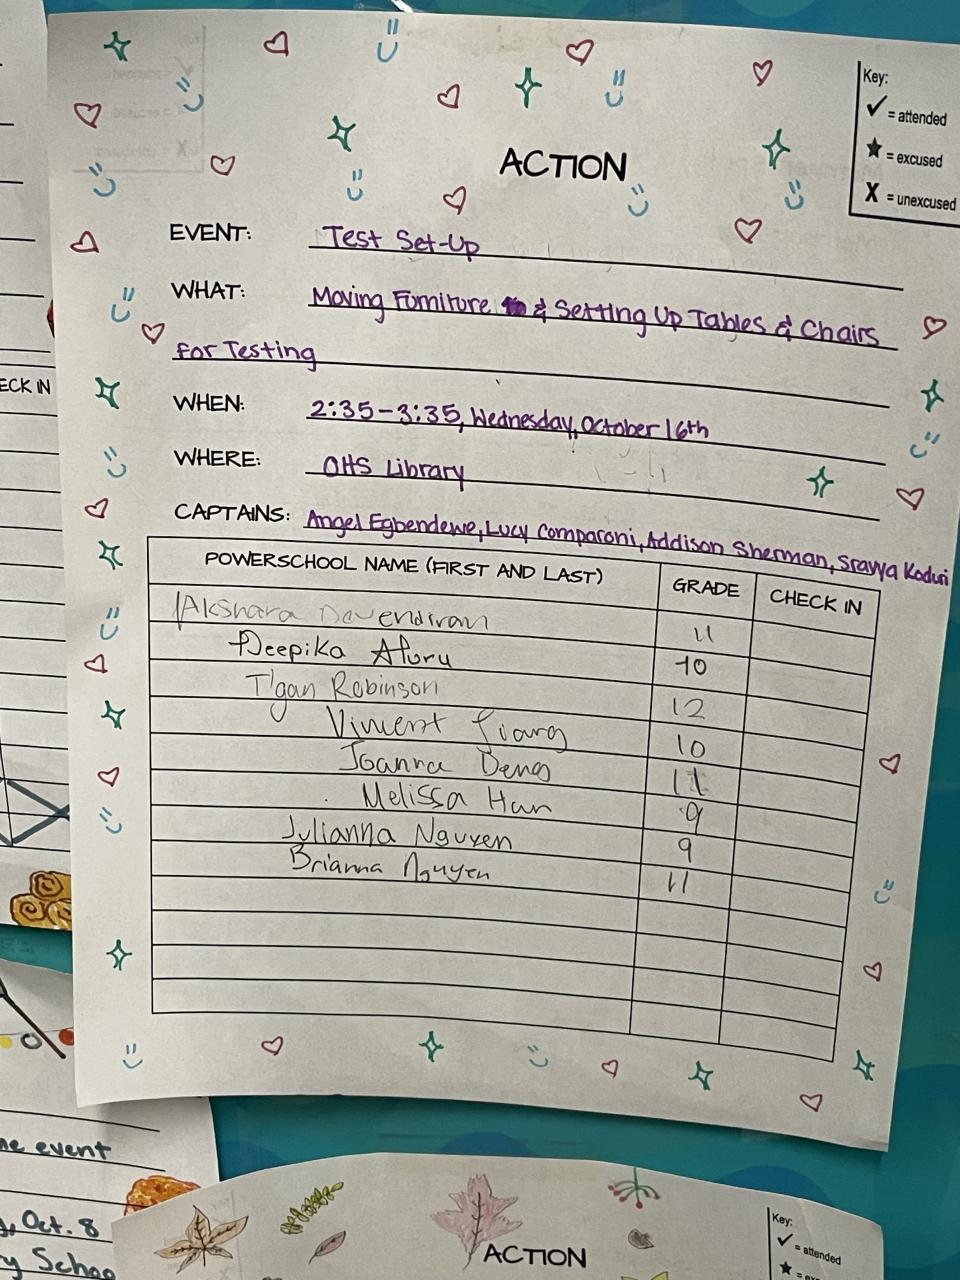 Key:
✓ = attended
★ = excused
X = unexcused
ACTION
EVENT: Test Set-Up
WHAT: Moving Furniture & Setting Up Tables & Chairs
for Testing
WHEN: 2:35-3:35, Wednesday, October 16th
WHERE: OHS Library
CAPTAINS: Angel Egbendewe, Lucy Comparoni, Addison Sherman, Sravya Koduri
POWERSCHOOL NAME (FIRST AND LAST) GRADE CHECK IN
Akshara Devendiran 11
Deepika Aluru 10
T'gan Robinson 12
Vincent 10
Joanna Deng 11
Melissa Han 9
Julianna Nguyen 9
Brianna Nguyen 11
ECK IN
ne event
Oct. 8
y Schoo
ACTION
Key:
✓ = attended
★ = ex